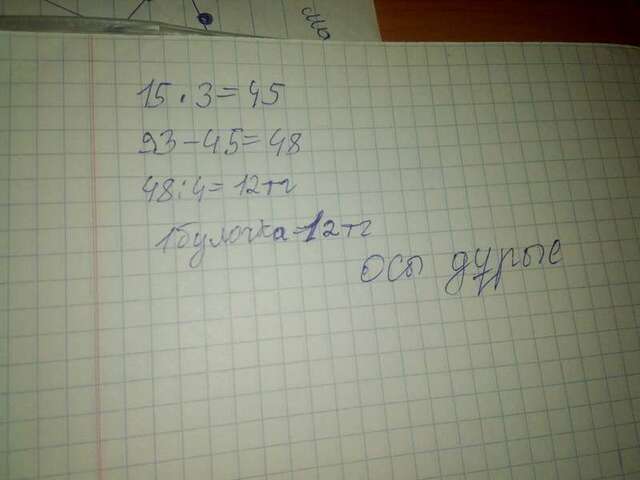 15 · 3 = 45
93 - 45 = 48
48 : 4 = 12тг
1 булочка - 12тг
Осы дурыс